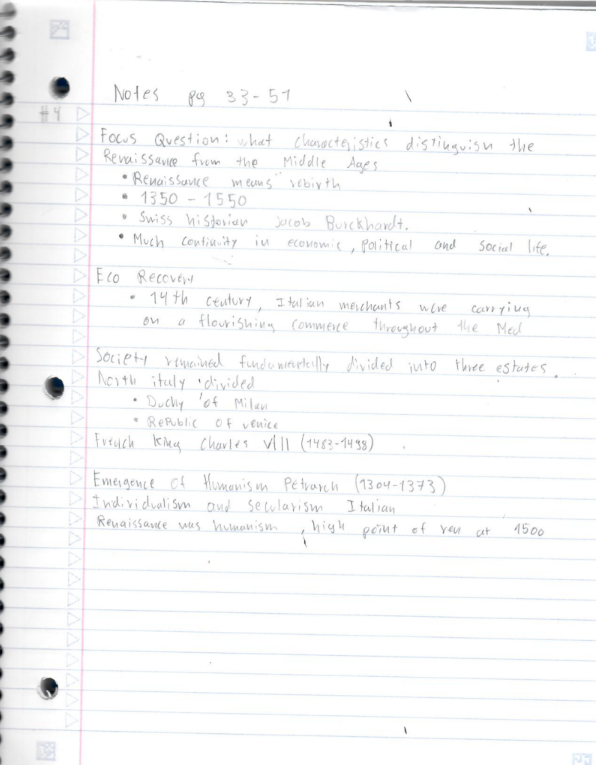 Notes pg 33-51
#4
Focus Question: what characteristics distinguish the
Renaissance from the Middle Ages
• Renaissance means rebirth
• 1350 - 1550
• Swiss historian Jacob Burckhardt.
• Much continuity in economic, political and social life.
Eco Recovery
• 14th century, Italian merchants were carrying
on a flourishing commerce throughout the Med
Society remained fundamentally divided into three estates.
North italy divided
• Duchy of Milan
• Republic of venice
French King Charles VIII (1483-1498)
Emergence of Humanism Petrarch (1304-1373)
Individualism and Secularism Italian
Renaissance was humanism, high point of ren at 1500